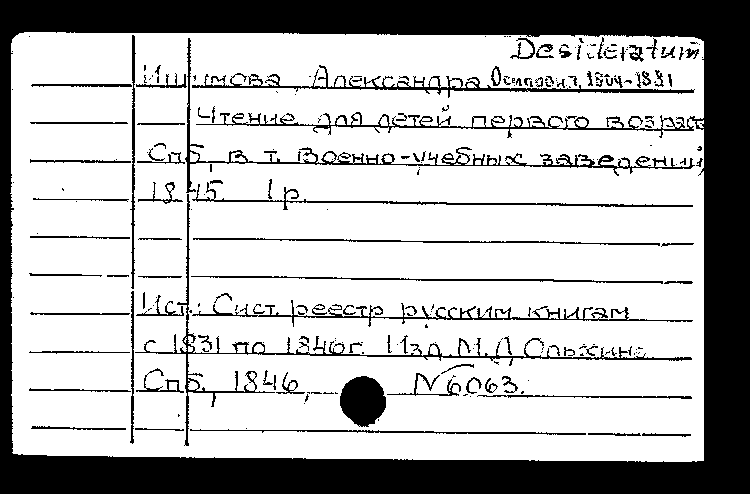 Desideratum
Ишимова, Александра Осиповна, 1804-1881
Чтение для детей первого возраста
Спб, в т. Военно-учебных заведений,
1845. 1 р.
Ист.: Сист. реестр русским книгам
с 1831 по 1846г. Изд. М.Д. Ольхина.
Спб., 1846, № 6063.